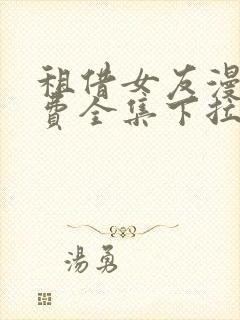 租借女友漫
费全集下拉
湯勇